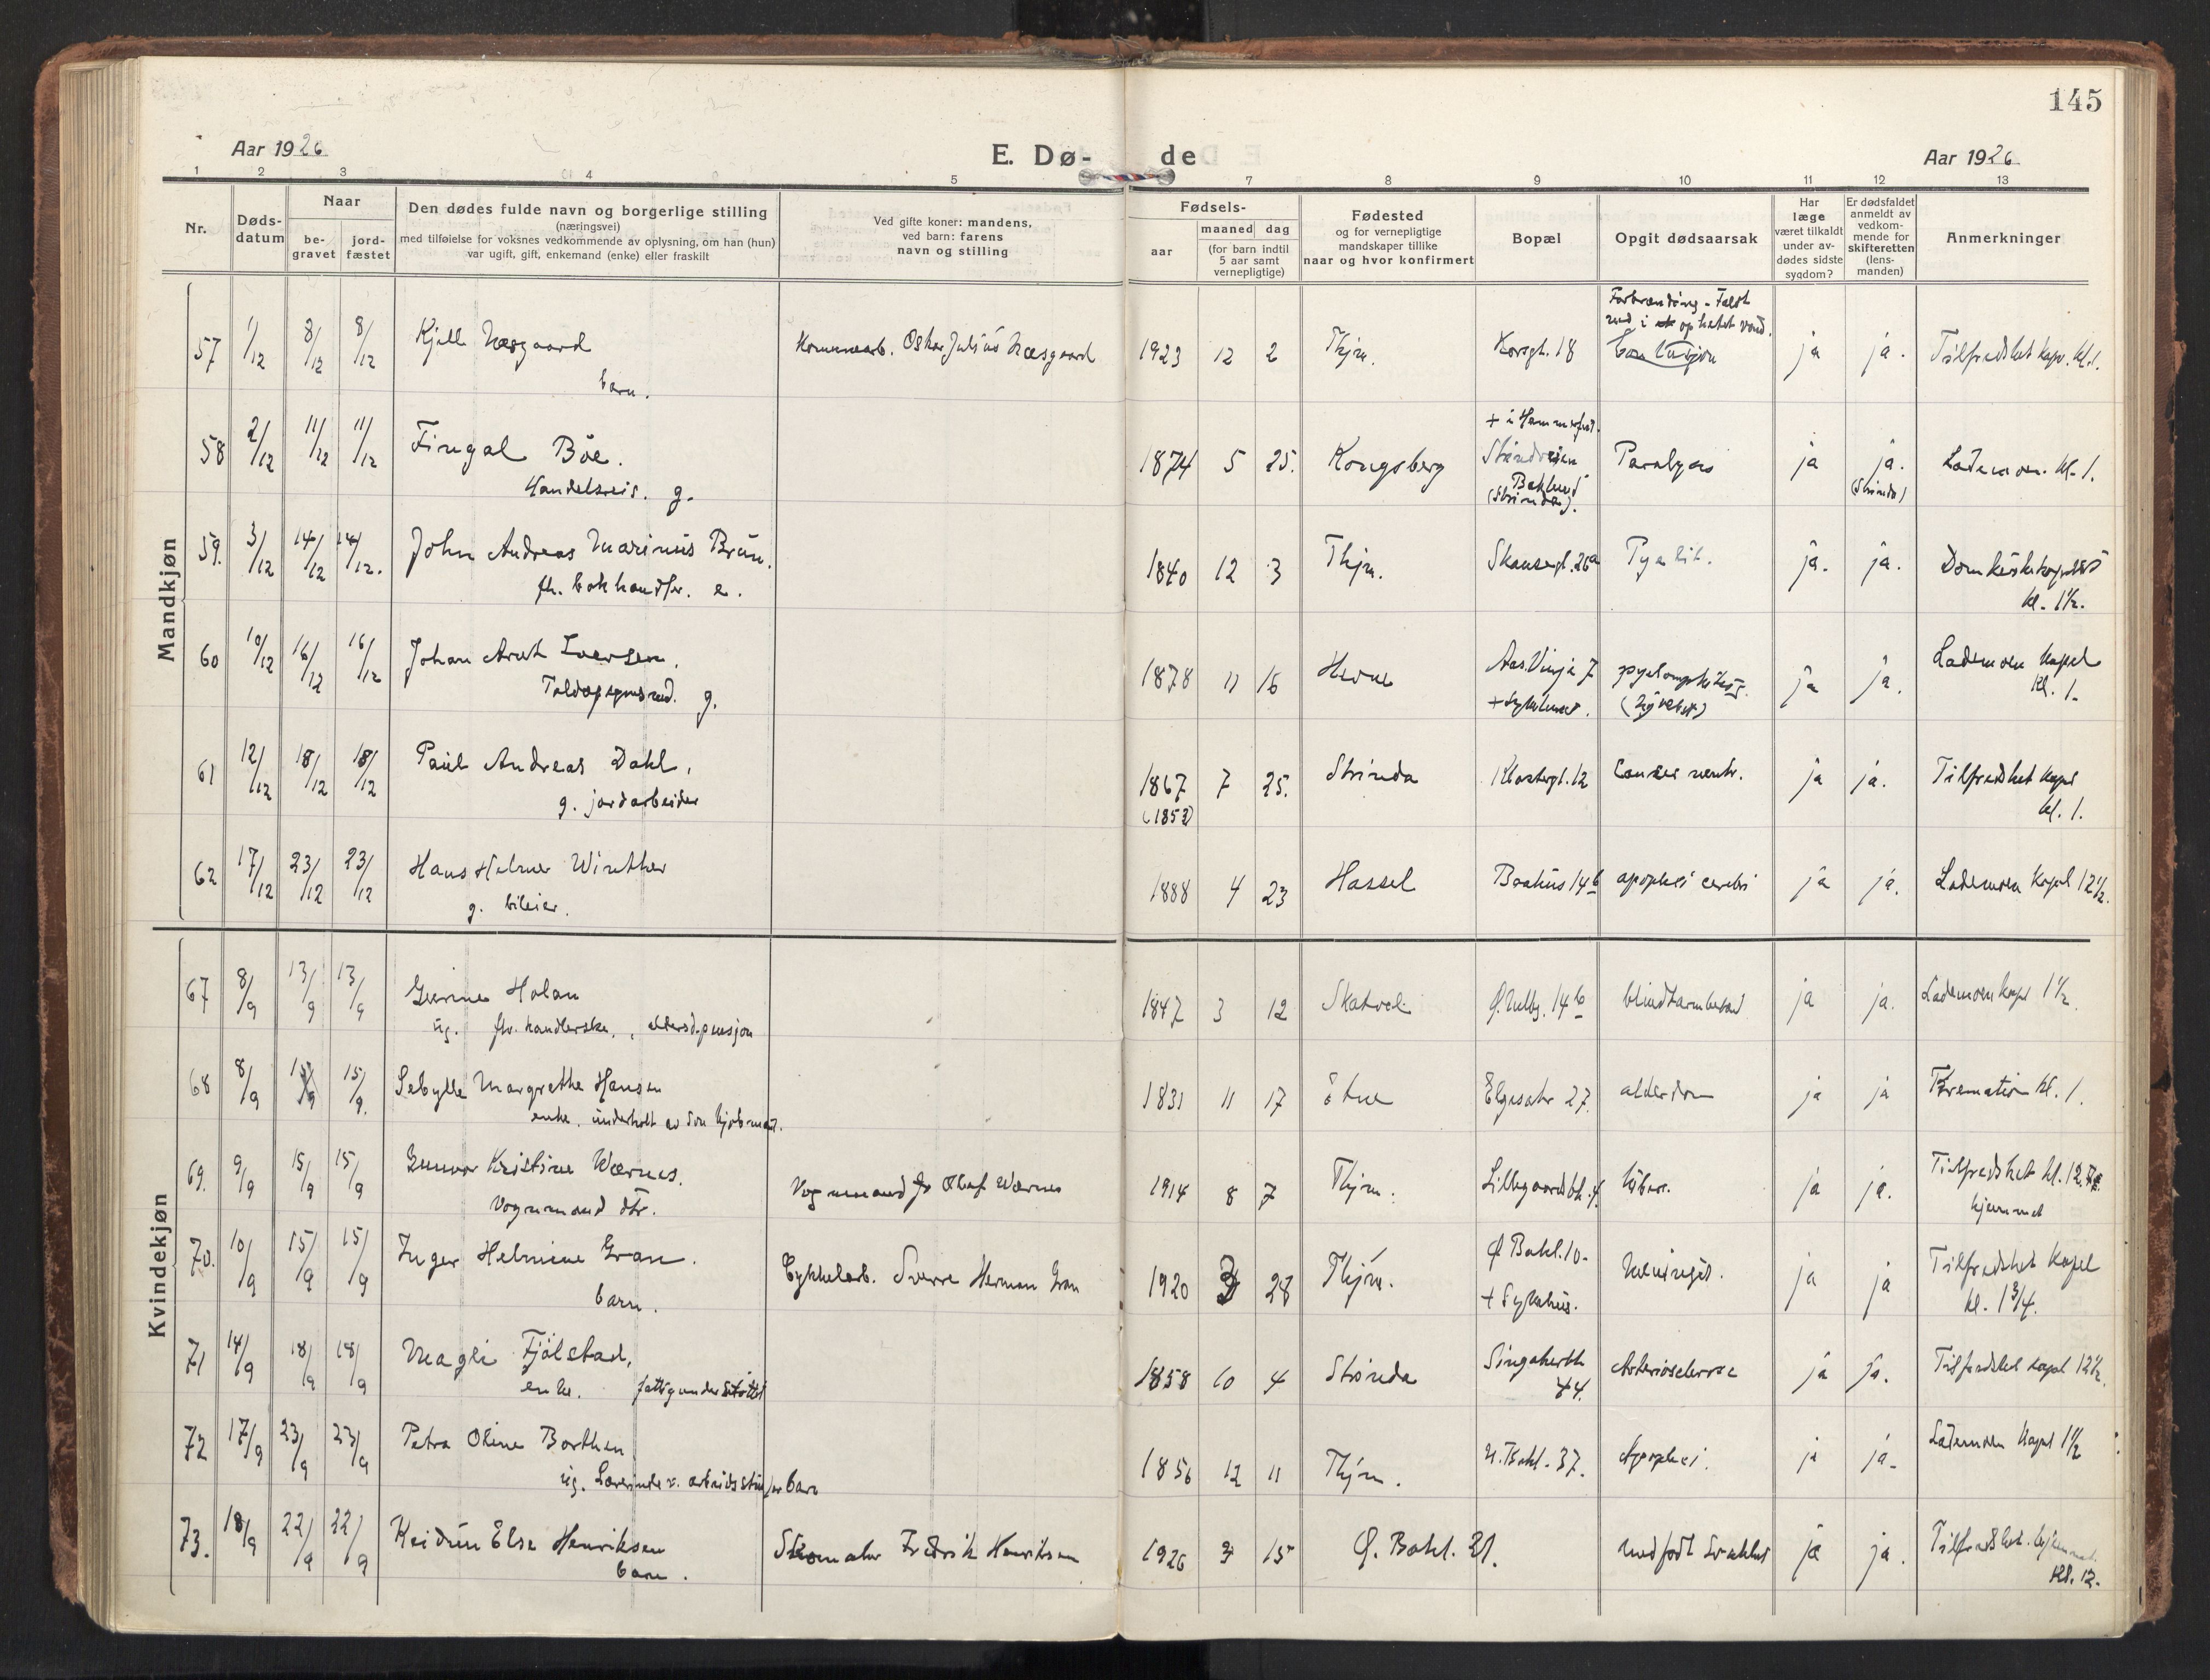 145
Aar 1926
E. Dø- de
Aar 1926
1 2 3 4 5 7 8 9 10 11 12 13
Nr.
Døds-
datum
Naar
be-
gravet
jord-
fæstet
Den dødes fulde navn og borgerlige stilling
(næringsvei)
med tilføielse for voksnes vedkommende av oplysning, om han (hun)
var ugift, gift, enkemand (enke) eller fraskilt
Ved gifte koner: mandens,
ved barn: farens
navn og stilling
Fødsels-
aar
maaned dag
(for barn indtil
5 aar samt
vernepligtige)
Fødested
og for vernepligtige
mandskaper tillike
naar og hvor konfirmert
Bopæl
Opgit dødsaarsak
Har
læge
været tilkaldt
under av-
dødes sidste
sygdom?
Er dødsfaldet
anmeldt av
vedkom-
mende for
skifteretten
(lens-
manden)
Anmerkninger
Mandkjøn
57 1/12 8/12 8/12 Kjell Næsgaard
barn.
Kommunearb. Oskar Julius Næsgaard
1923 12 2 Thjm. Korsgt. 18
Forbrænding - Faldt
ned i ophetet vand.
ja ja. Tilfredshet kap. kl. 1.
58 2/12 11/12 11/12 Fingal Böe.
Handelsreis. g.
1874 5 25. Kongsberg
+ i Hammerfest.
Strindveien
Baklund
(Strinda).
Paralysis ja ja.
(Strinda)
Lademoen. kl. 1.
59. 3/12 14/12 14/12. John Andreas Marinus Brun.
fh. bokhandler. e.
1840 12 3 Thjm. Skansegt. 26a Pyelit. ja. ja. Domkirke
kl. 1½.
60 10/12 16/12 16/12 Johan Arnt Iversen.
Toldopsynsmd. g.
1878 11 16 Hevne Aas. Vinje 7
+ Sykehuset.
ja ja. Lademoen Kapel
kl. 1.
61 12/12 18/12 18/12 Paul Andreas Dahl,
g. jordarbeider
1867 7 25. Strinda Klostergt. 12 Cancer ventr. ja ja. Tilfredshet Kapel
kl. 1.
62 17/12 23/12 23/12 Hans Helmer Winther
g. bileier.
1888 4 23 Hassel Baahus 14b apoplexi cerebri ja ja. Lademoen Kapel 12½.
Kvindekjøn
67 8/9 13/9 13/9 Gurine Holan
ug. fhv. handlerske, alderd.pensjon
1847 3 12 Skatval Ø. Møllbg. 14b blindtarmbetænd ja ja. Lademoen Kapel 1½.
68 8/9 15/9 15/9. Sebylle Margrethe Hansen
enke. underholt av søn kjøbmand.
1831 11 17 Elgesæter 27. alderdom ja ja Kremation kl. 1.
69. 9/9 15/9 15/9 Gunvor Kristine Wærnes.
Vognmand dtr.
Vognmand Olaf Wærnes
1914 8 7 Thjm. ja ja. Tilfredshet kl. 12.
hjemmet
70. 10/9 15/9 15/9 Inger Helmine Gran.
barn.
Cykkelarb. Sverre Herman Gran
1920 3 28 Thjm. Ø Bakl. 10-
+ Sykehus.
Meningit. ja ja Tilfredshet Kapel
kl. 1 3/4.
71 14/9 18/9 18/9 Magli Fjölstad,
enke. fattigunderstöttet
1858 10 4 Strinda Singsakerbk
44.
Arteriosclerose ja ja. Tilfredshet Kapel 12½.
72 17/9 23/9 23/9 Petra Oline Borthen
ug. Lærerinde v. arbeidsstue for barn
1856 12 11 Thjm. N. Bakl. 37. Apoplexi. ja ja. Lademoen Kapel 1½
73. 18/9 22/9 22/9 Reidun Else Henriksen
barn.
Skomaker Fredrik Henriksen
1926 9 15 Ø. Bakl. 21. medfödt Svakhet ja ja. Tilfredshet.
kl. 12.